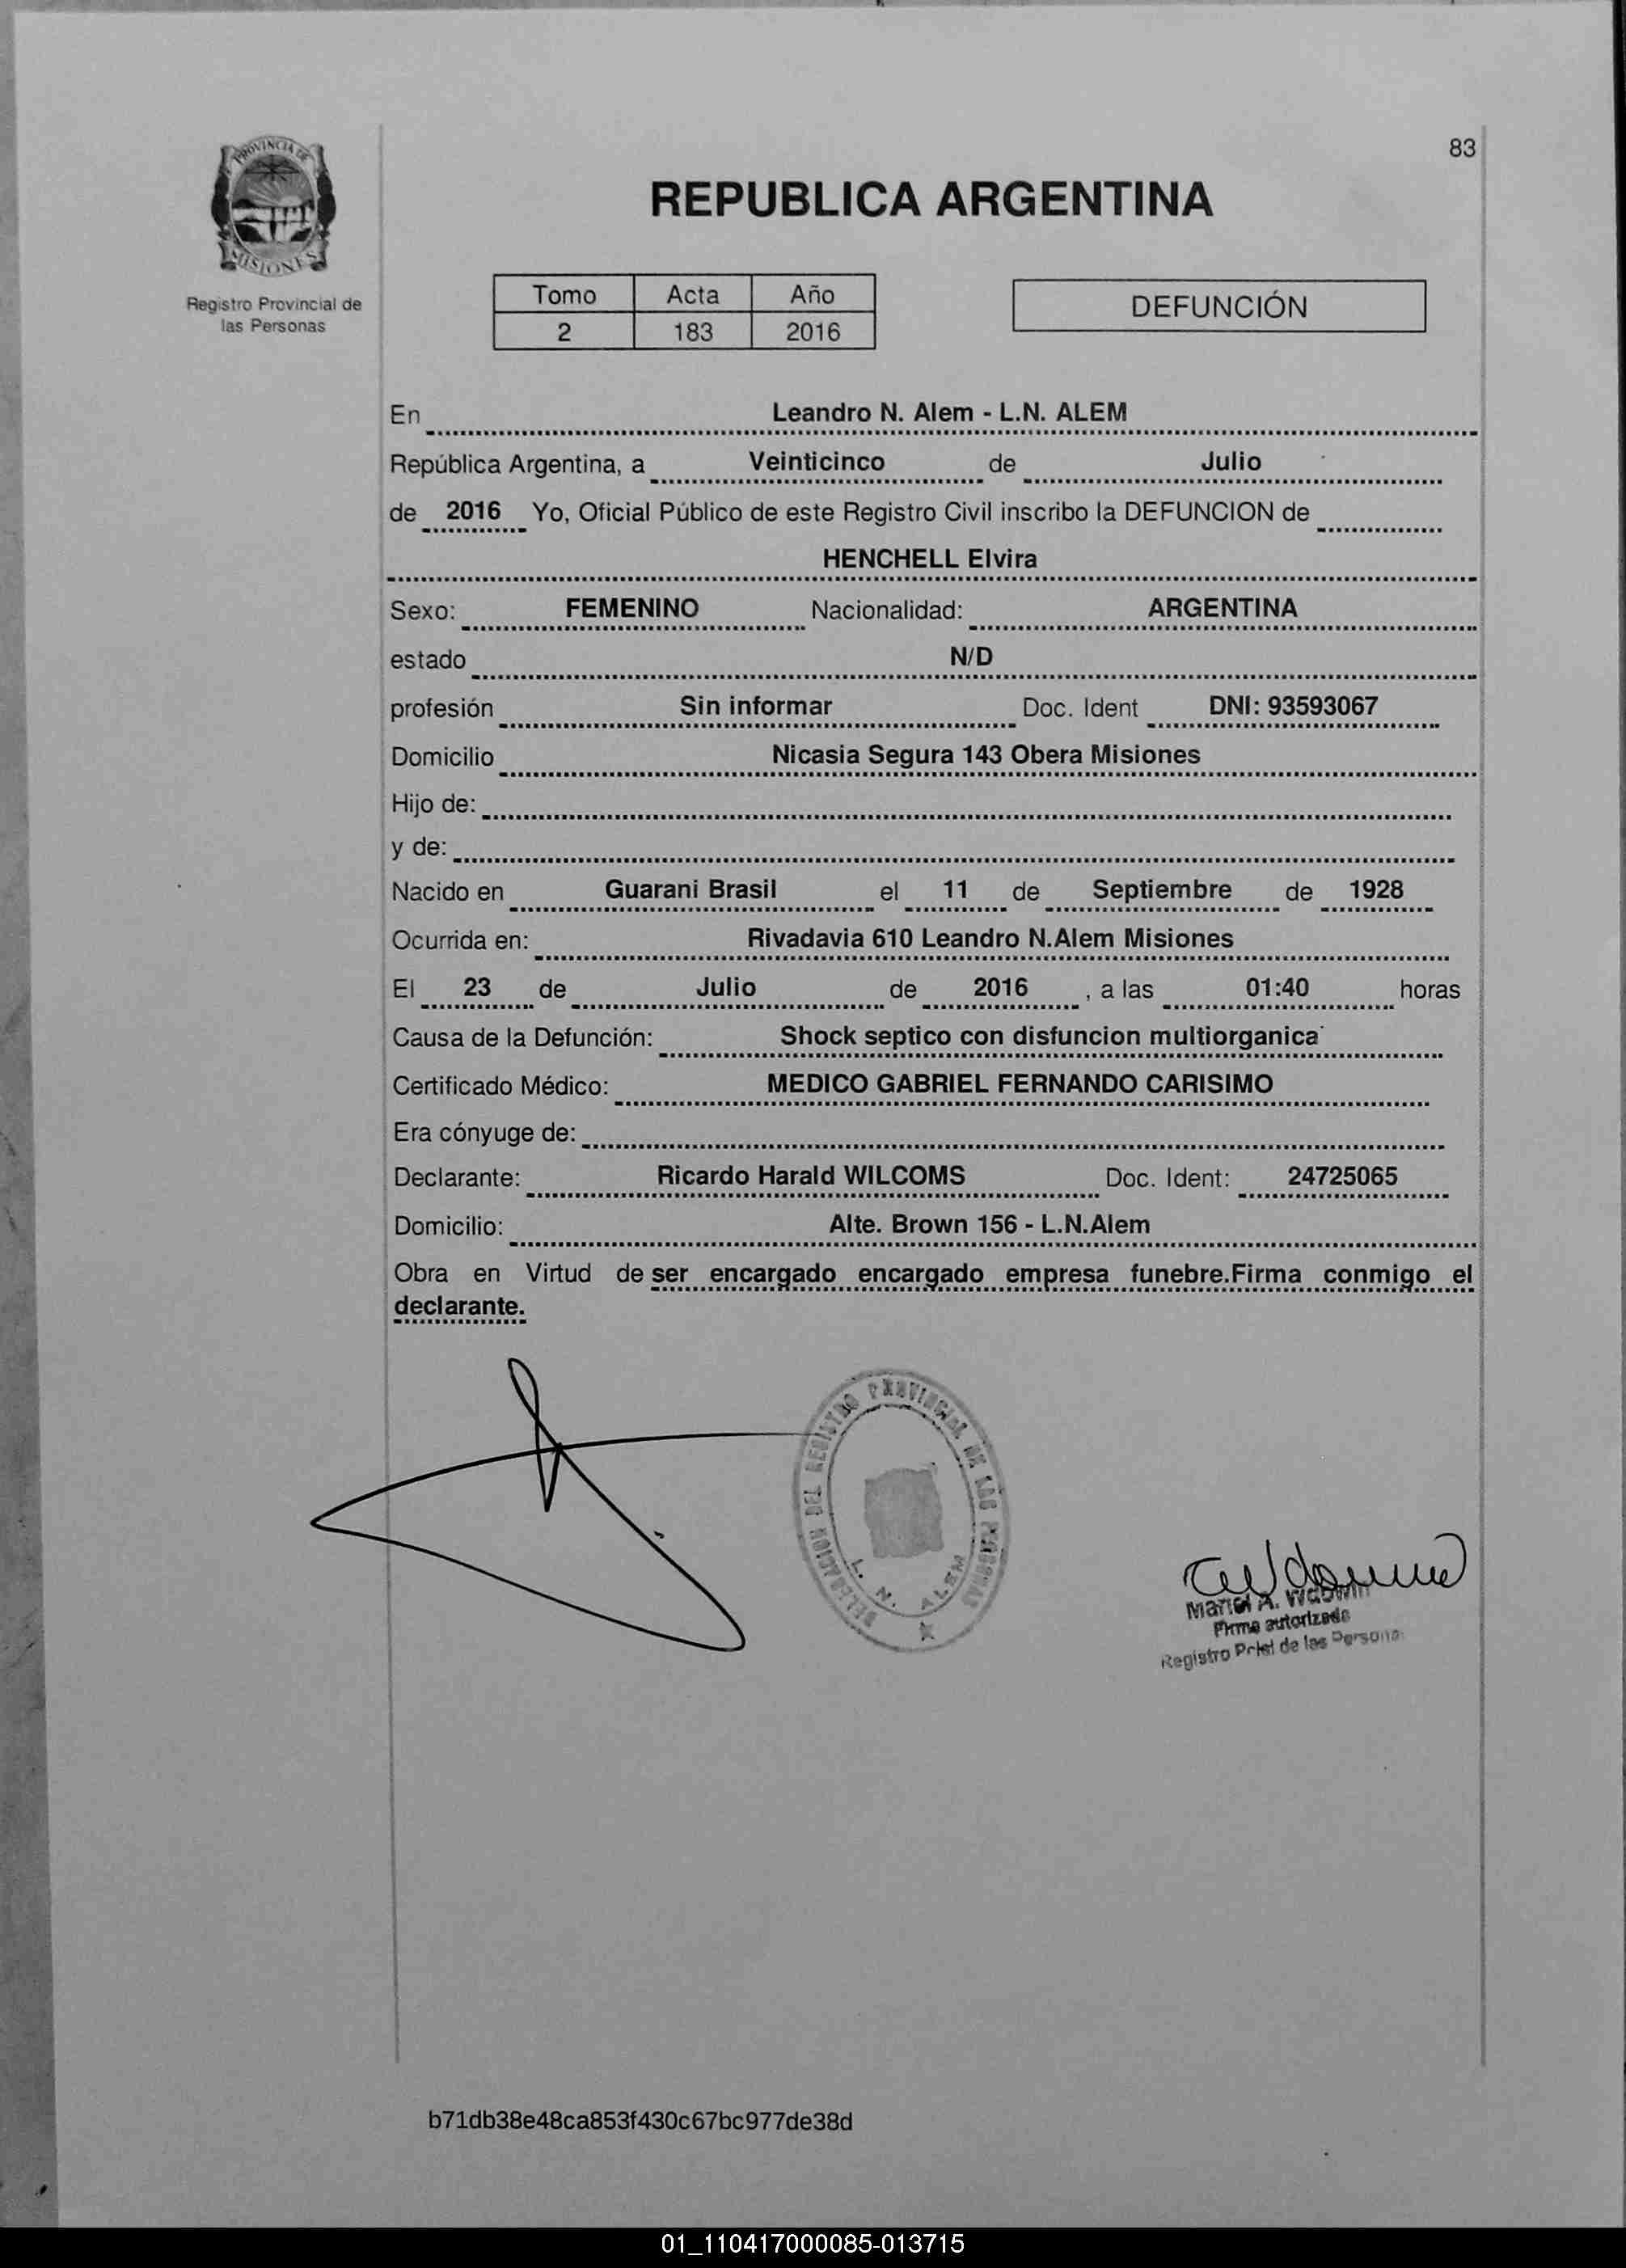 83
PROVINCIA DE
MISIONES
Registro Provincial de
las Personas
REPUBLICA ARGENTINA
Tomo Acta Año
2 183 2016
DEFUNCIÓN
En Leandro N. Alem - L.N. ALEM
República Argentina, a Veinticinco de Julio
de 2016 Yo, Oficial Público de este Registro Civil inscribo la DEFUNCION de
HENCHELL Elvira
Sexo: FEMENINO Nacionalidad: ARGENTINA
estado N/D
profesión Sin informar Doc. Ident DNI: 93593067
Domicilio Nicasia Segura 143 Obera Misiones
Hijo de:
y de:
Nacido en Guarani Brasil el 11 de Septiembre de 1928
Ocurrida en: Rivadavia 610 Leandro N.Alem Misiones
El 23 de Julio de 2016 , a las 01:40 horas
Causa de la Defunción: Shock septico con disfuncion multiorganica
Certificado Médico: MEDICO GABRIEL FERNANDO CARISIMO
Era cónyuge de:
Declarante: Ricardo Harald WILCOMS Doc. Ident: 24725065
Domicilio: Alte. Brown 156 - L.N.Alem
Obra en Virtud de ser encargado encargado empresa funebre.Firma conmigo el
declarante.
DELEGACION DEL REGISTRO PROVINCIAL DE LAS PERSONAS
L. N. ALEM
A.
Firma autorizada
Registro Pcial de las Personas
b71db38e48ca853f430c67bc977de38d
01_110417000085-013715